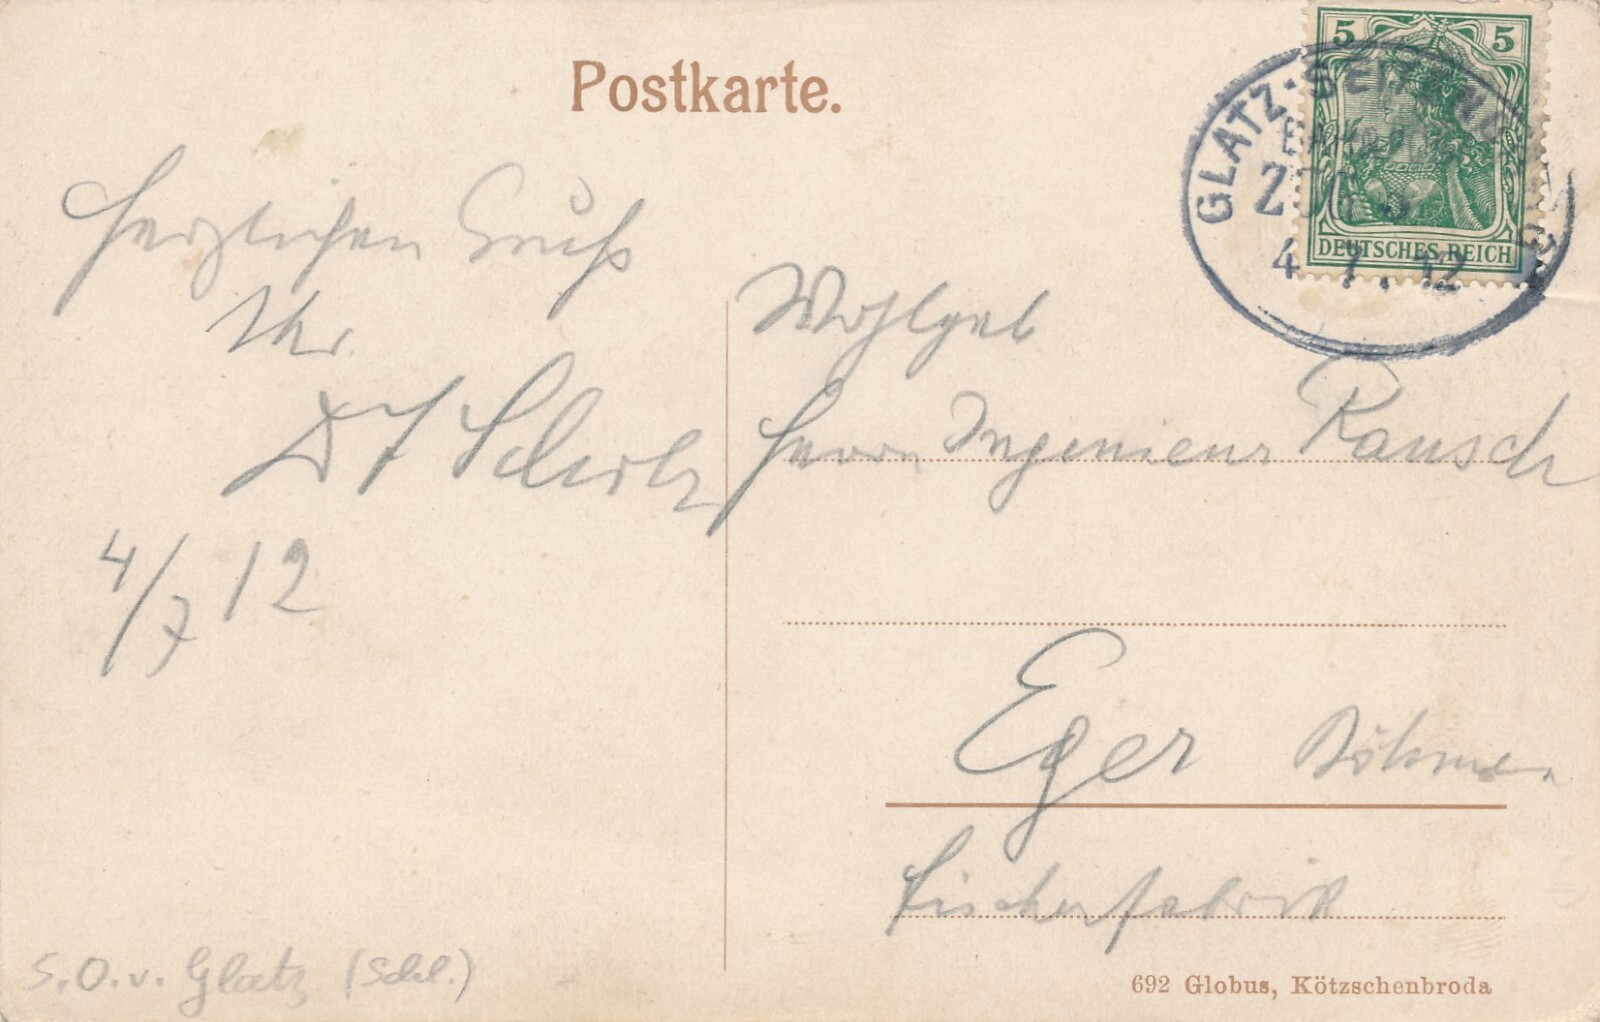 Postkarte.
5 5
DEUTSCHES REICH
GLATZ-
ZUG
4 7 . 12
Herzlichen Gruß
Ihr
4/7 12
Wohlgeb
Herrn Ingenieur Rausch
Eger Böhmen
Fischerfabrik
S.O.v. Glatz (Schl.)
692 Globus, Kötzschenbroda